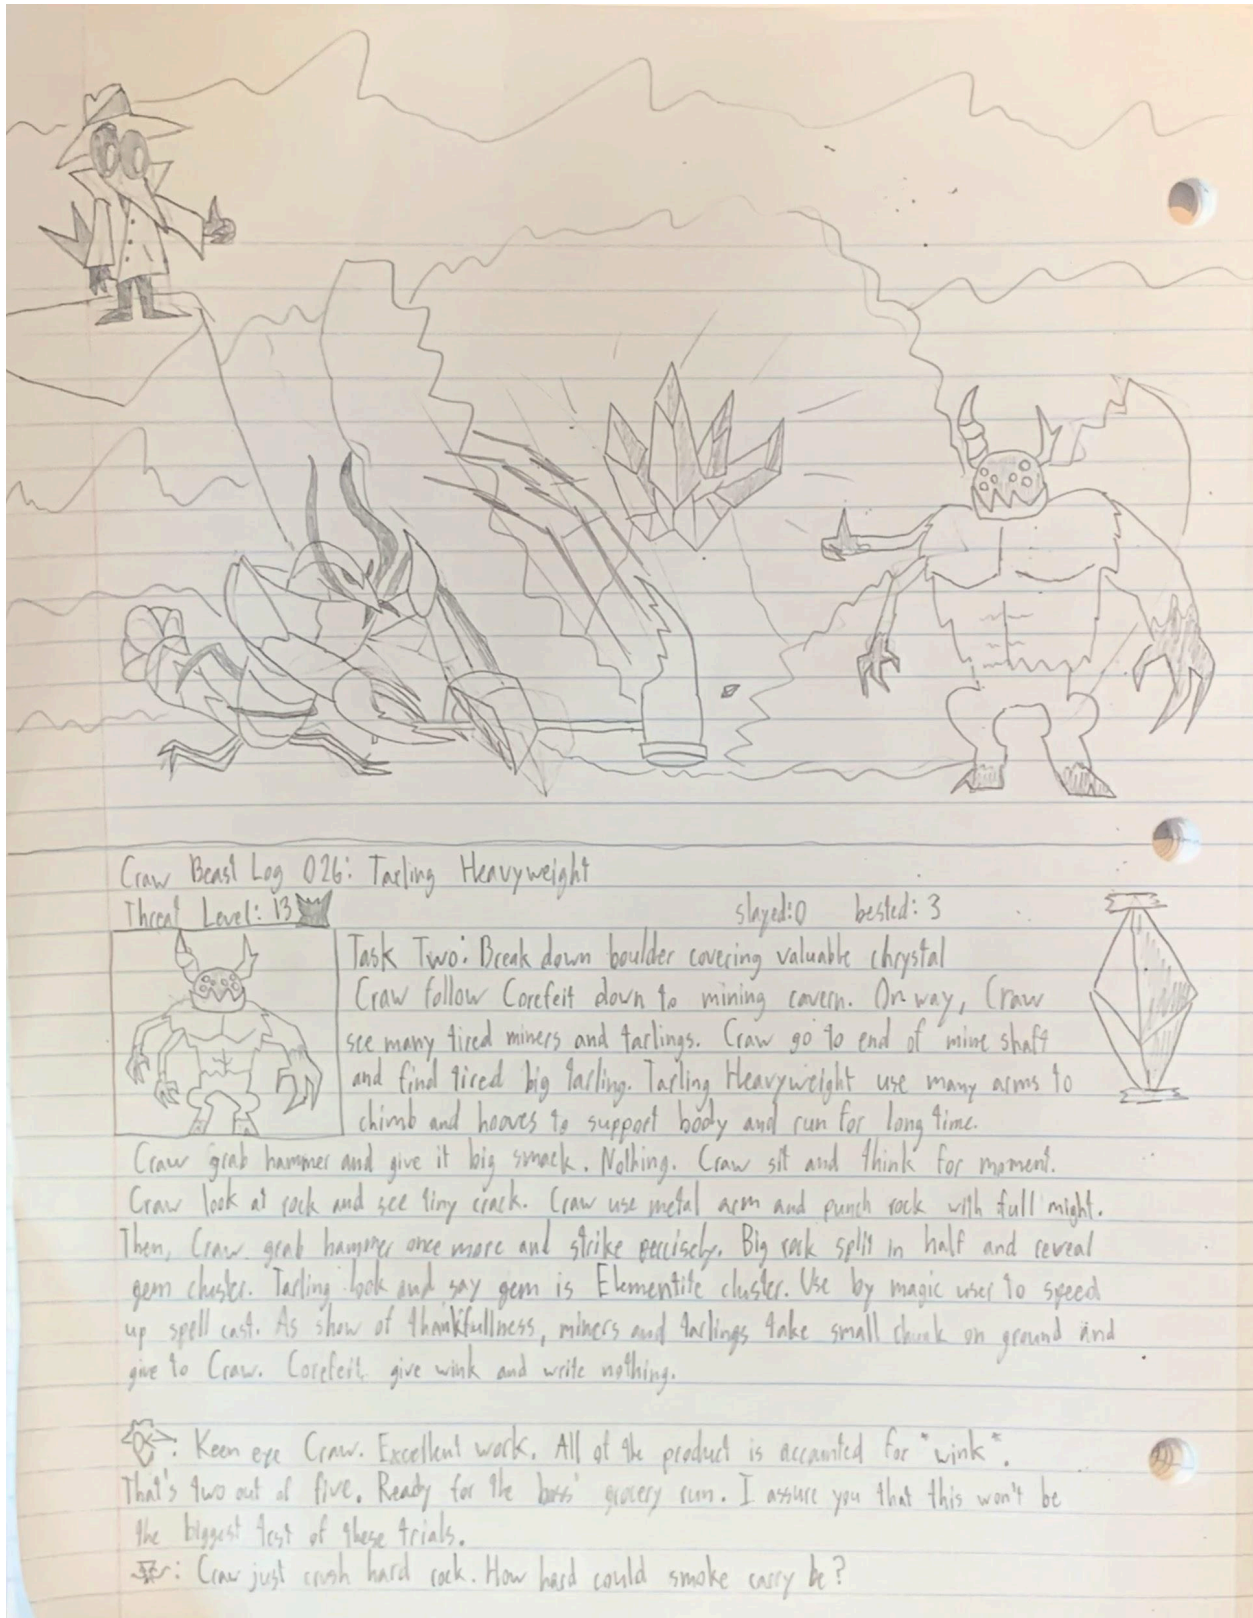 Craw Beast Log 026: Tarling Heavyweight
Threat Level: 13
slayed:0 bested: 3
Task Two: Break down boulder covering valuable chrystal
Craw follow Corefeit down to mining cavern. On way, Craw
see many tired miners and tarlings. Craw go to end of mine shaft
and find tired big tarling. Tarling Heavyweight use many arms to
chimb and hooves to support body and run for long time.
Craw grab hammer and give it big smack. Nothing. Craw sit and think for moment.
Craw look at rock and see tiny crack. Craw use metal arm and punch rock with full might.
Then, Craw grab hammer once more and strike percisely. Big rock split in half and reveal
gem cluster. Tarling look and say gem is Elementite cluster. Use by magic user to speed
up spell cast. As show of thankfullness, miners and tarlings take small chunk on ground and
give to Craw. Corefeit give wink and write nothing.
: Keen eye Craw. Excellent work. All of the product is accounted for *wink*.
That's two out of five. Ready for the boss' grocery run. I assure you that this won't be
the biggest test of these trials.
: Craw just crush hard rock. How hard could smoke carry be?